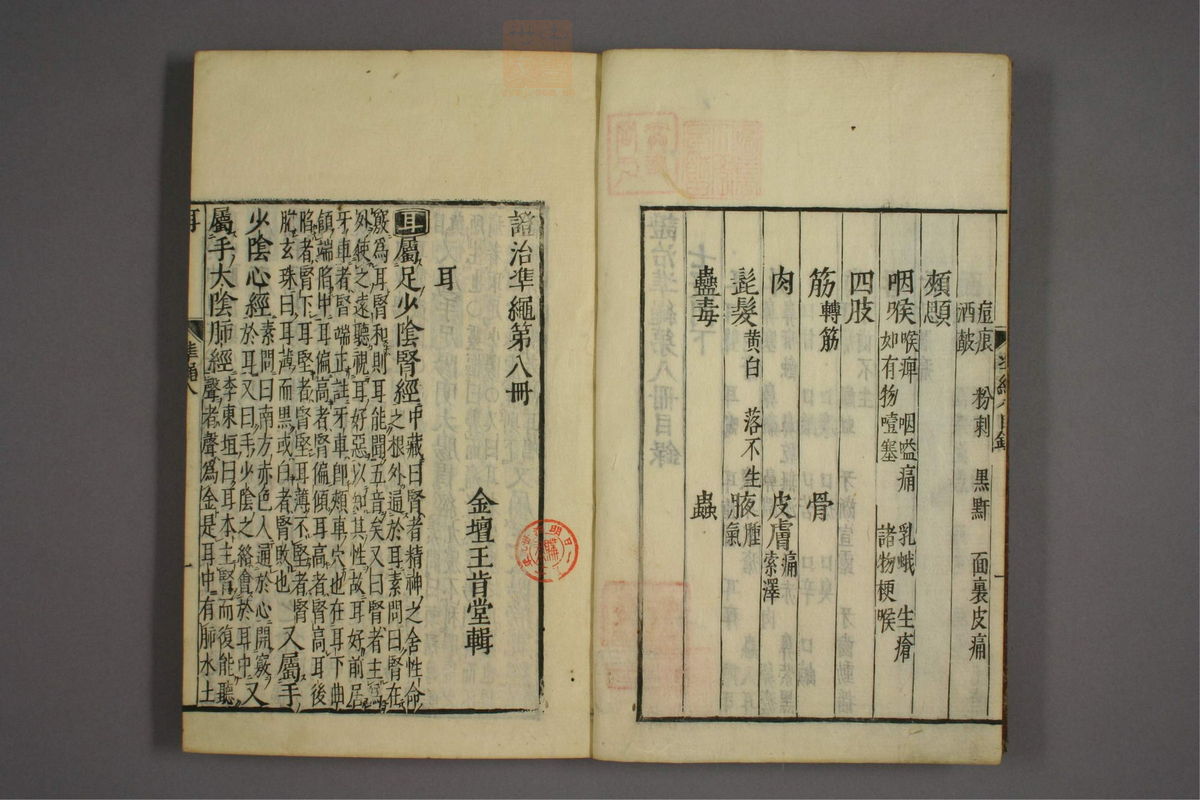 痘痕 粉刺 黒䵟 面裏皮痛
酒皶
頰顋
咽喉 喉痺 咽嗌痛 乳蛾 生瘡
如有物噎塞 諸物梗喉
四肢
筋 轉筋 骨
肉 皮膚 痛
索澤
髭髮 黄白 落不生 腋 腫
氣
蠱毒 蟲
證治準繩第八冊
耳
金壇王肯堂輯
耳屬足少陰腎經 中藏曰腎者精神之舍性命
之根外通於耳素問曰腎在
竅為耳腎和則耳能聞五音矣又曰腎者主
外使之遠聽視耳好惡以知其性故耳好前居
牙車者腎端正註牙車卽頰車穴也在耳下曲
頰端陷中耳偏高者腎偏傾耳高者腎高耳後
陷者腎下耳堅者腎堅耳薄不堅者腎
脆玄珠曰耳薄而黒或白者腎敗也 又屬手
少陰心經 素問曰南方赤色入通於心開竅
於耳又曰手少陰之絡會於耳中 又
屬手太陰肺經 李東垣曰耳本主腎而復能聽
聲者聲為金是耳中有肺水土
耳 準繩八 一